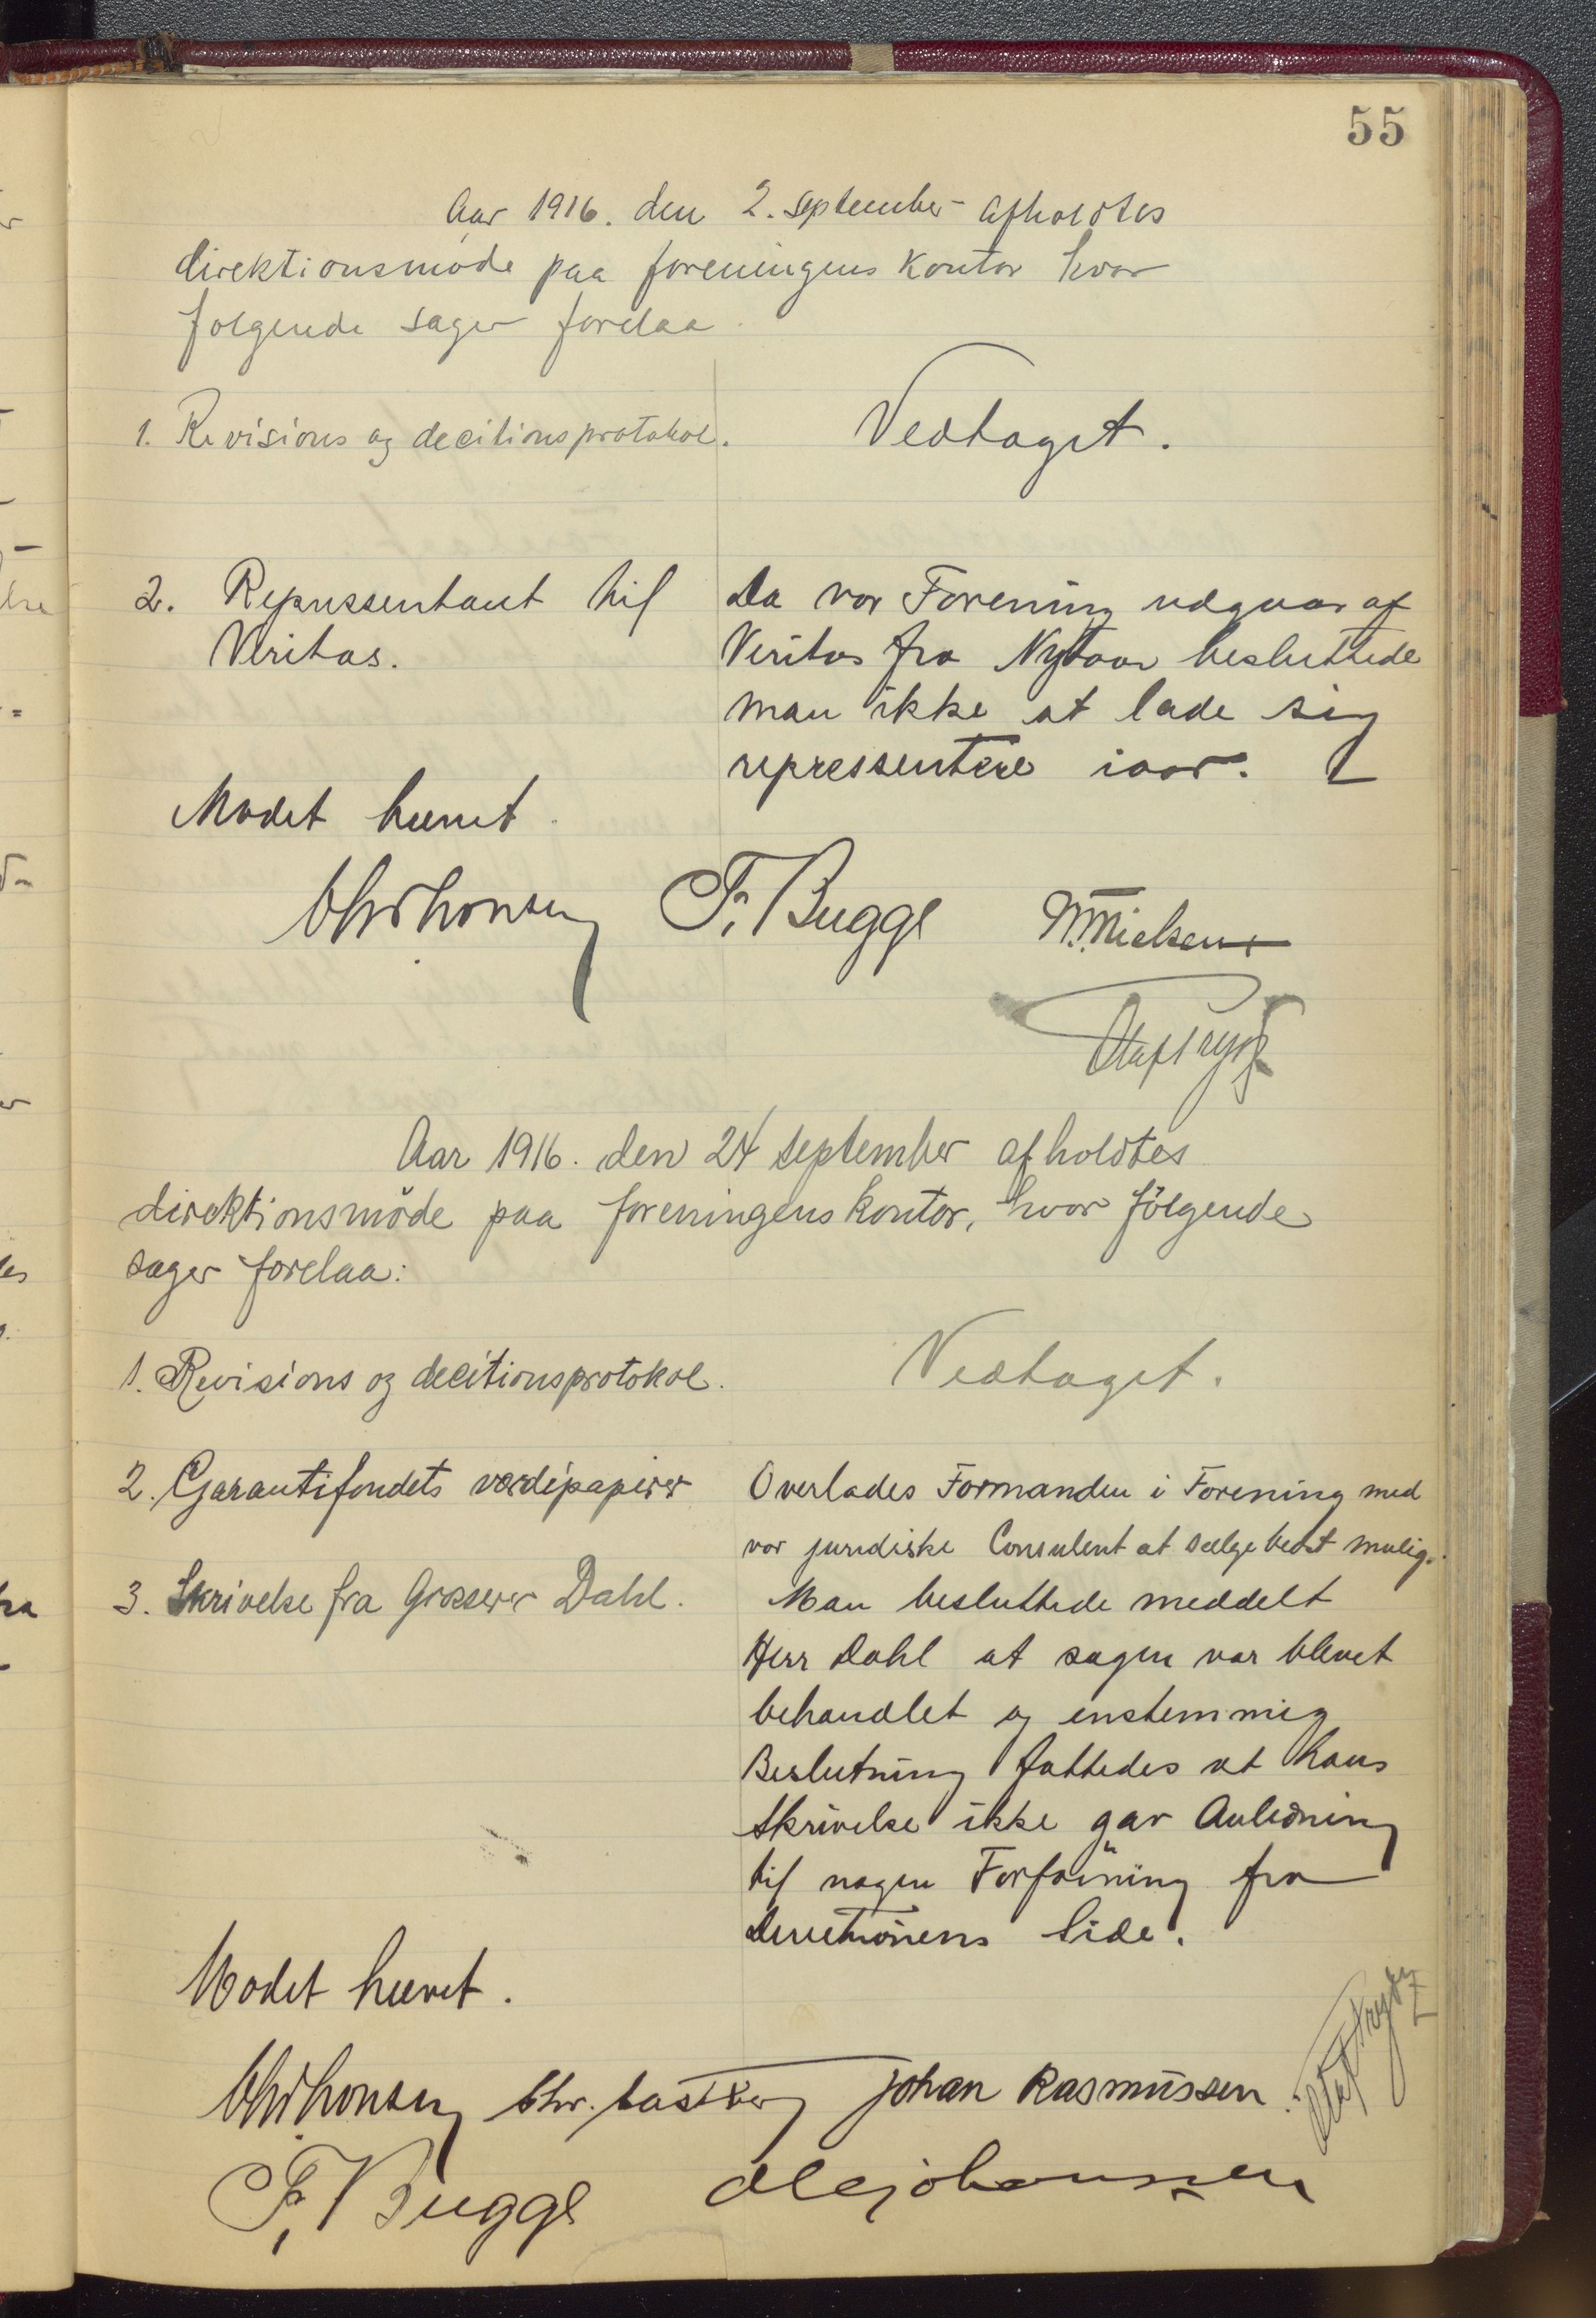 55
Aar 1916. den 2. september afholdtes
direktionsmøde paa foreningens kontor hvor
folgende sager forelaa
1. Revisions og decitionsprotokol.
Vedtaget.
2. Repressentant til
Veritas.
Da vor Forening udgaar af
Veritas fra Nytaar besluttede
man ikke at lade sig
repressentere iaar.
Modet hævet.
F. Bugge
N. Nielsen
Aar 1916. den 24 september afholdtes
direktionsmöde paa foreningens kontor, hvor fölgende
sager forelaa:
1. Revisions og decitionsprotokol.
Vedtaget.
2. Garantifondets værdipapirer
Overlades Formanden i Forening med
vor juridiske Consulent at sælge bedst mulig.
3. Skrivelse fra Grosserer Dahl.
Man besluttede meddelt
Herr Dahl at sagen var blevet
behandlet og enstemmig
Beslutning fattedes at hans
Skrivelse ikke gav Anledning
til nogen Forføining fra
Directionens Side.
Modet hævet.
Johan Rasmussen
F. Bugge
Ole Johanssen